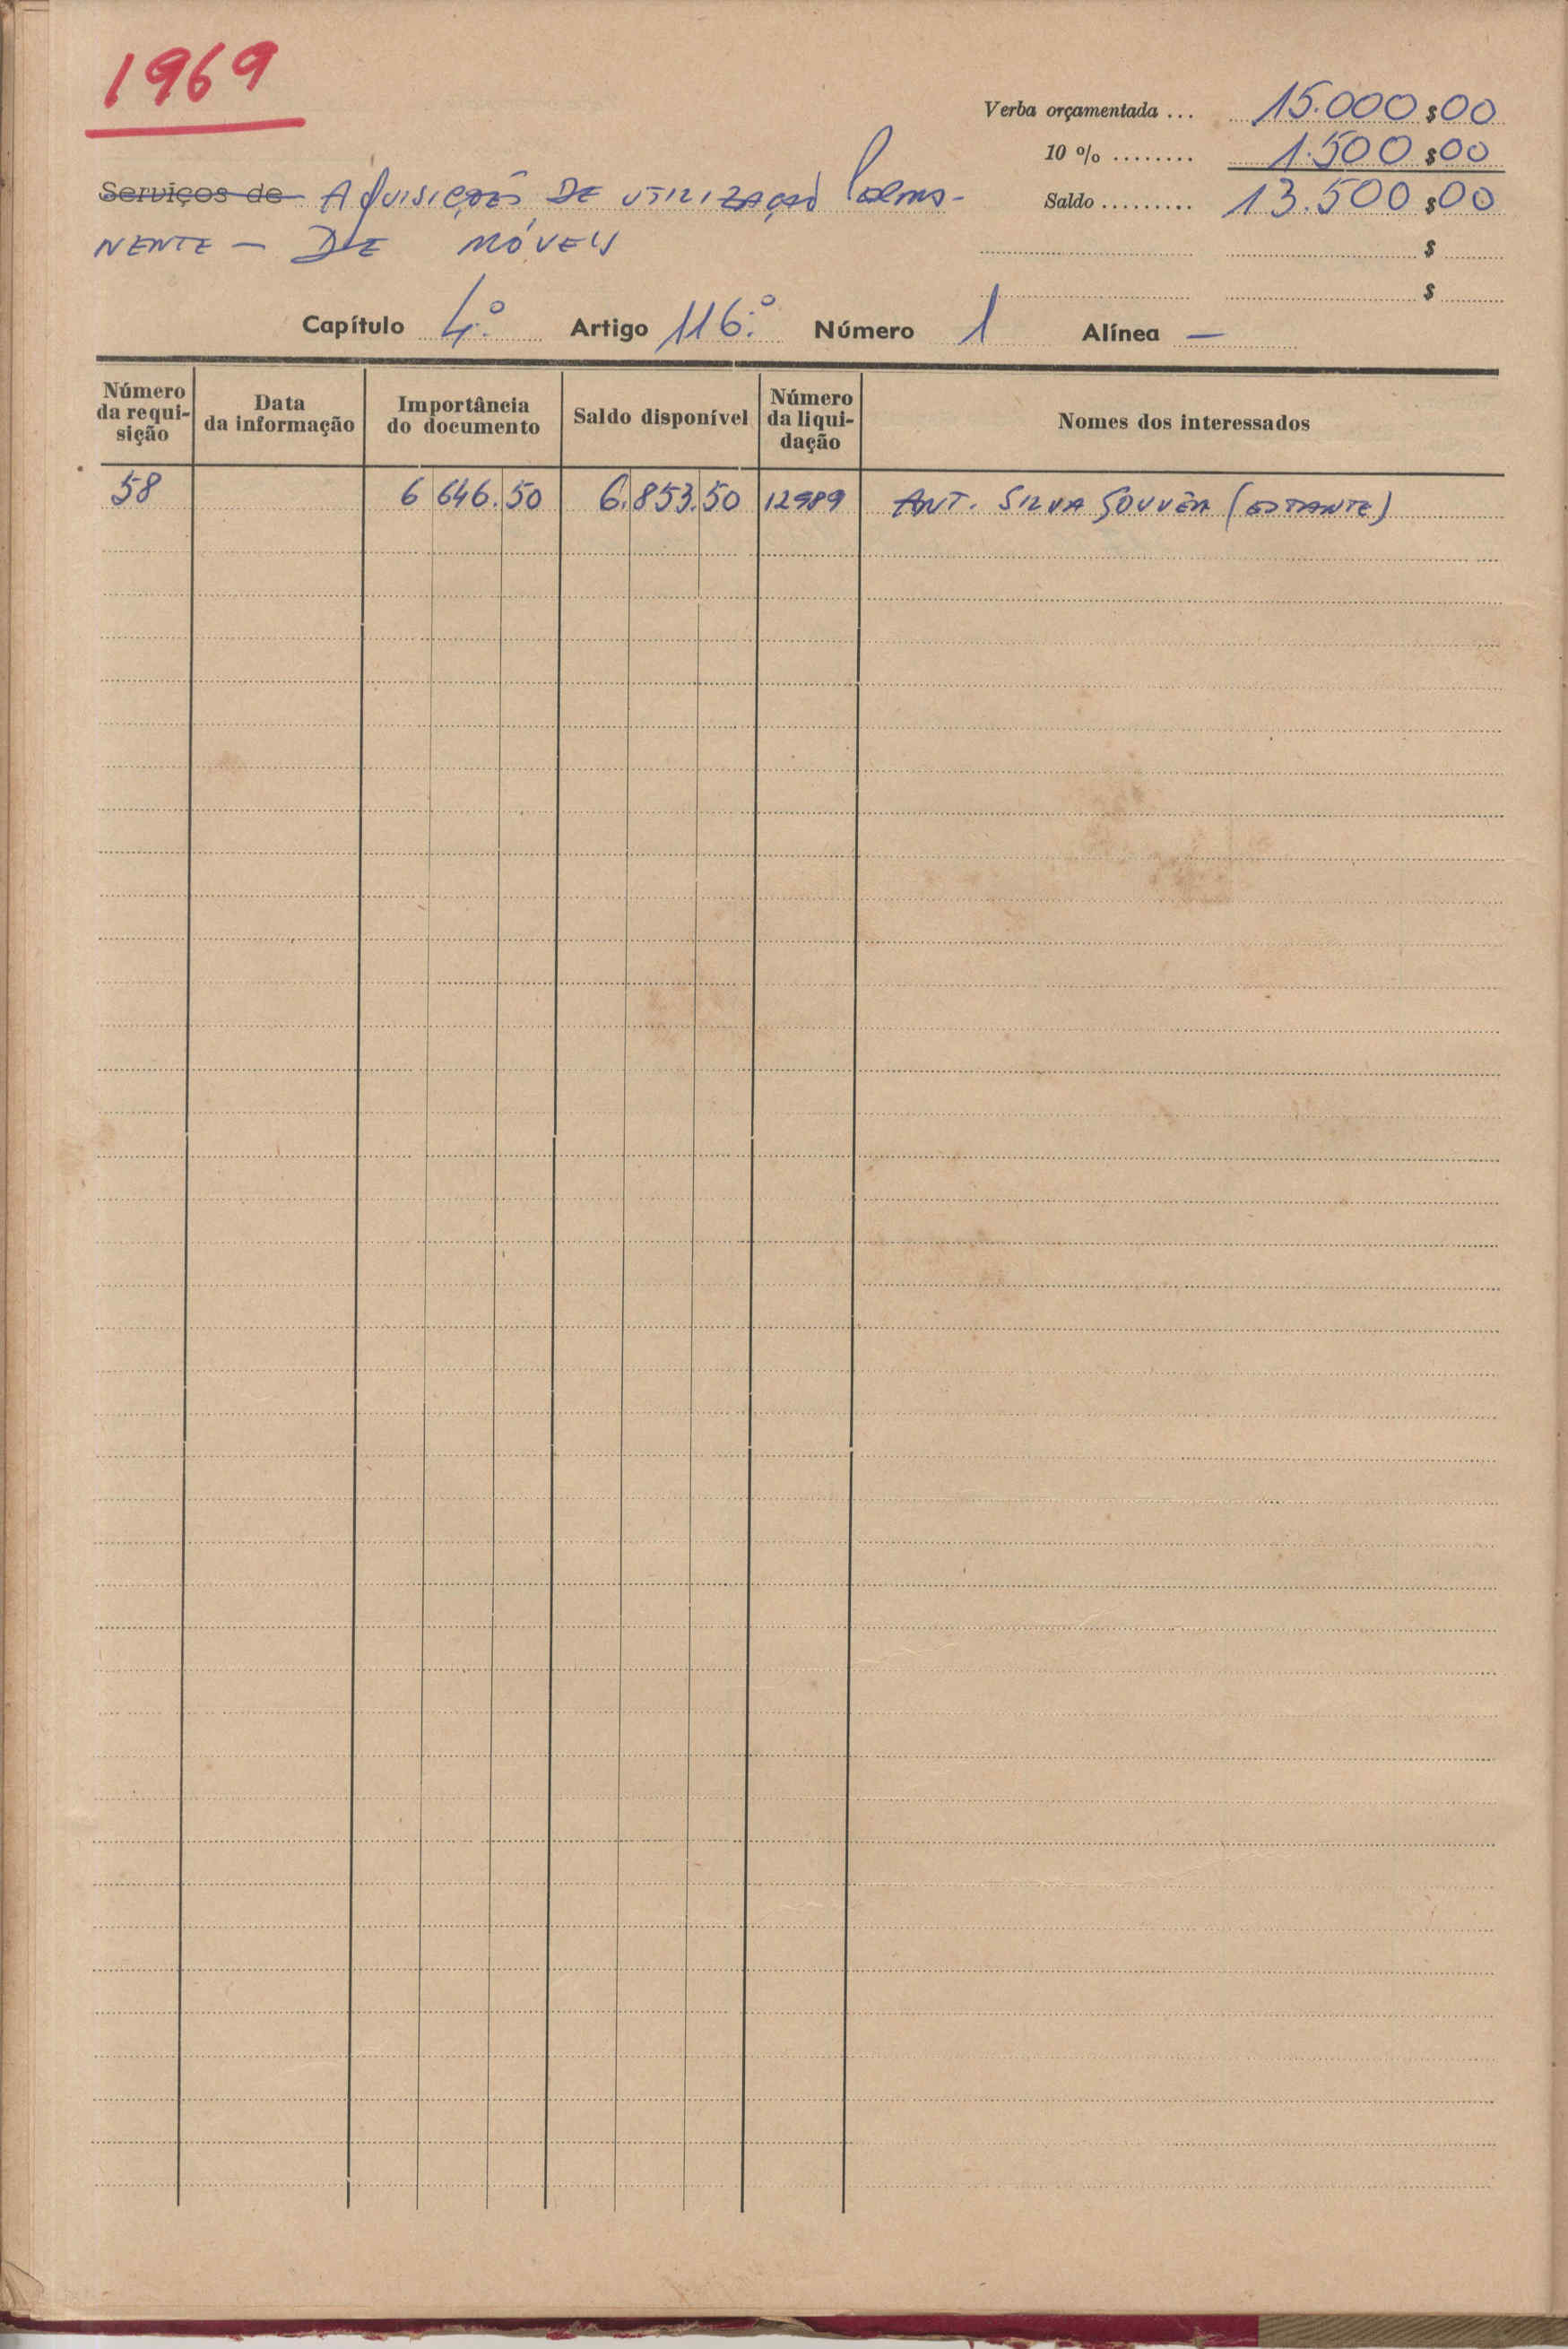 1969
Verba orçamentada ... 15.000$00
10 % ........ 1.500$00
Serviços de Aquisições DE UTILIZAÇÃO PERMA-
Saldo ......... 13.500$00
NENTE — DE MÓVEIS
$
$
Capítulo 4.º Artigo 116.º Número 1 Alínea —
Número da requi-sição Data da informação Importância do documento Saldo disponível Número da liqui-dação Nomes dos interessados
58 6 646.50 6.853.50 12989 ANT. SILVA GOUVÊA (ESTANTE)